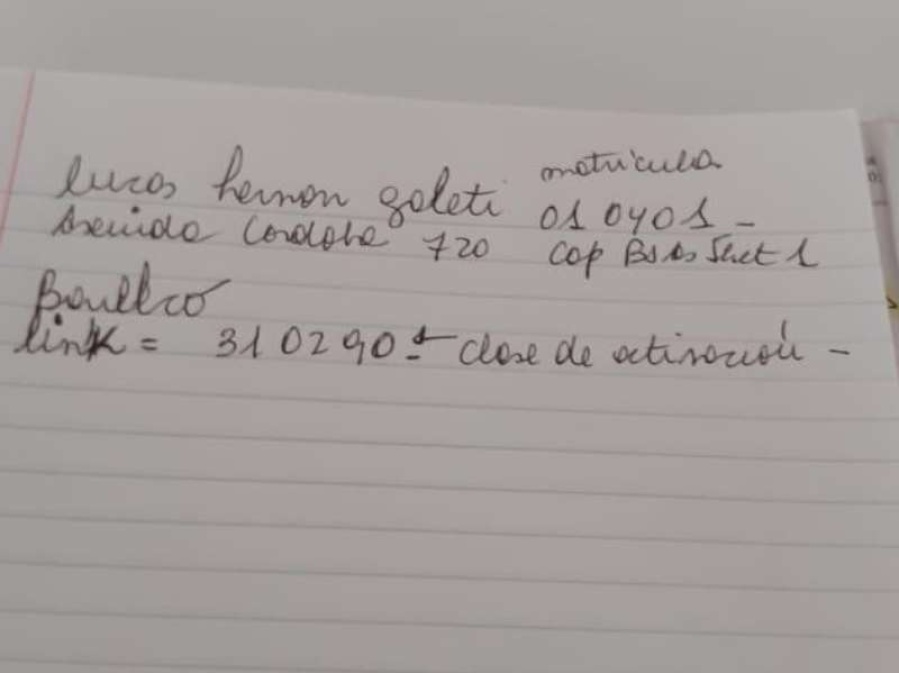 lucas hernon galeti matricula 010401-
Avenida Cordoba 720 Cap Bs As
link = 310290 clave de activación -